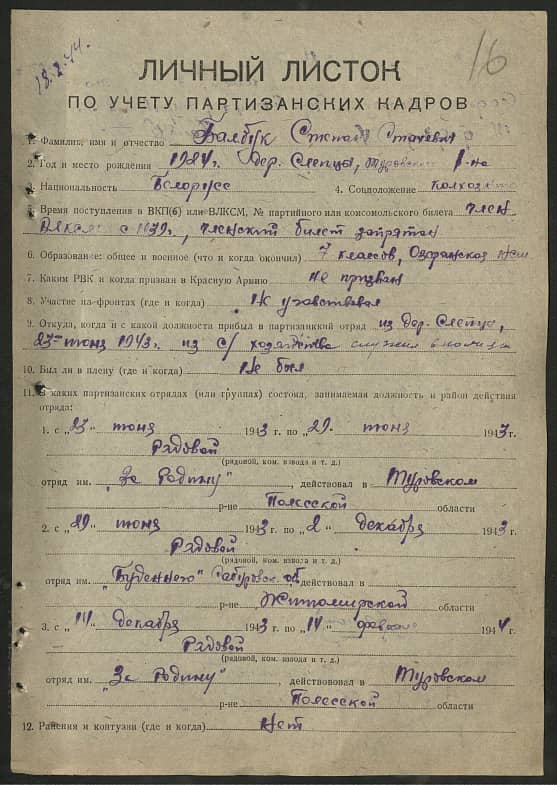 18.2.44.
16
ЛИЧНЫЙ ЛИСТОК
ПО УЧЕТУ ПАРТИЗАНСКИХ КАДРОВ
1. Фамилия, имя и отчество Балбук Степан
2. Год и место рождения 1924г. дер. Слепцы, Туровского р-на
3. Национальность Белорусс 4. Соцположение колхозник
5. Время поступления в ВКП(б) или ВЛКСМ, № партийного или комсомольского билета член
ВЛКСМ с 1939г., членский билет запрятан
6. Образование: общее и военное (что и когда окончил) 7 классов,
7. Каким РВК и когда призван в Красную Армию не призван
8. Участие на-фронтах (где и когда) Не участвовал
9. Откуда, когда и с какой должности прибыл в партизанский отряд из дер. Слепцы,
23 июня 1943г. из с/хозяйства служил
10. Был ли в плену (где и когда) Не был
11. В каких партизанских отрядах (или группах) состоял, занимаемая должность и район действия
отряда:
1. с „23“ июня 1943 г. по „29. июня 1943г.
Рядовой
(рядовой, ком. взвода и т. д.)
отряд им. „За Родину“, действовал в Туровском
р-не Полесской области
2. с „29“ июня 1943 г. по „2 декабря 1943г.
Рядовой
(рядовой, ком. взвода и т. д.)
отряд им. „Буденного“ Сабуровск. об действовал в
р-не Житомирской области
3. с „14“ декабря 1943 г. по „14“ февраля 1944 г.
Рядовой
(рядовой, ком. взвода и т. д.)
отряд им. „За Родину“, действововал в Туровском
р-не Полесской области
12. Ранения и контузии (где и когда) Нет